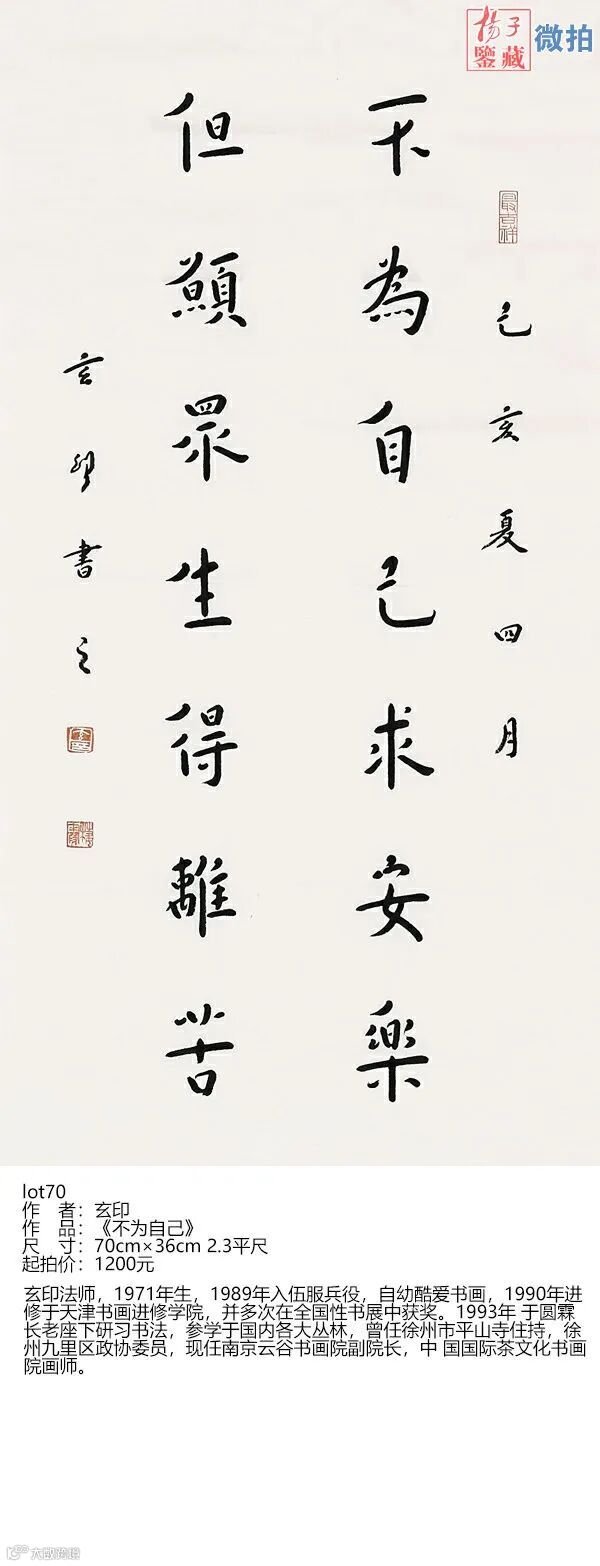 揚子
鑒藏
微拍
最吉祥
己亥夏四月
不為自己求安樂
但願眾生得離苦
玄印書之
lot70
作 者：玄印
作 品：《不为自己》
尺 寸：70cm×36cm 2.3平尺
起拍价：1200元
玄印法师，1971年生，1989年入伍服兵役，自幼酷爱书画，1990年进
修于天津书画进修学院，并多次在全国性书展中获奖。1993年 于圆霖
长老座下研习书法，参学于国内各大丛林，曾任徐州市平山寺住持，徐
州九里区政协委员，现任南京云谷书画院副院长，中 国国际茶文化书画
院画师。
大数跨境